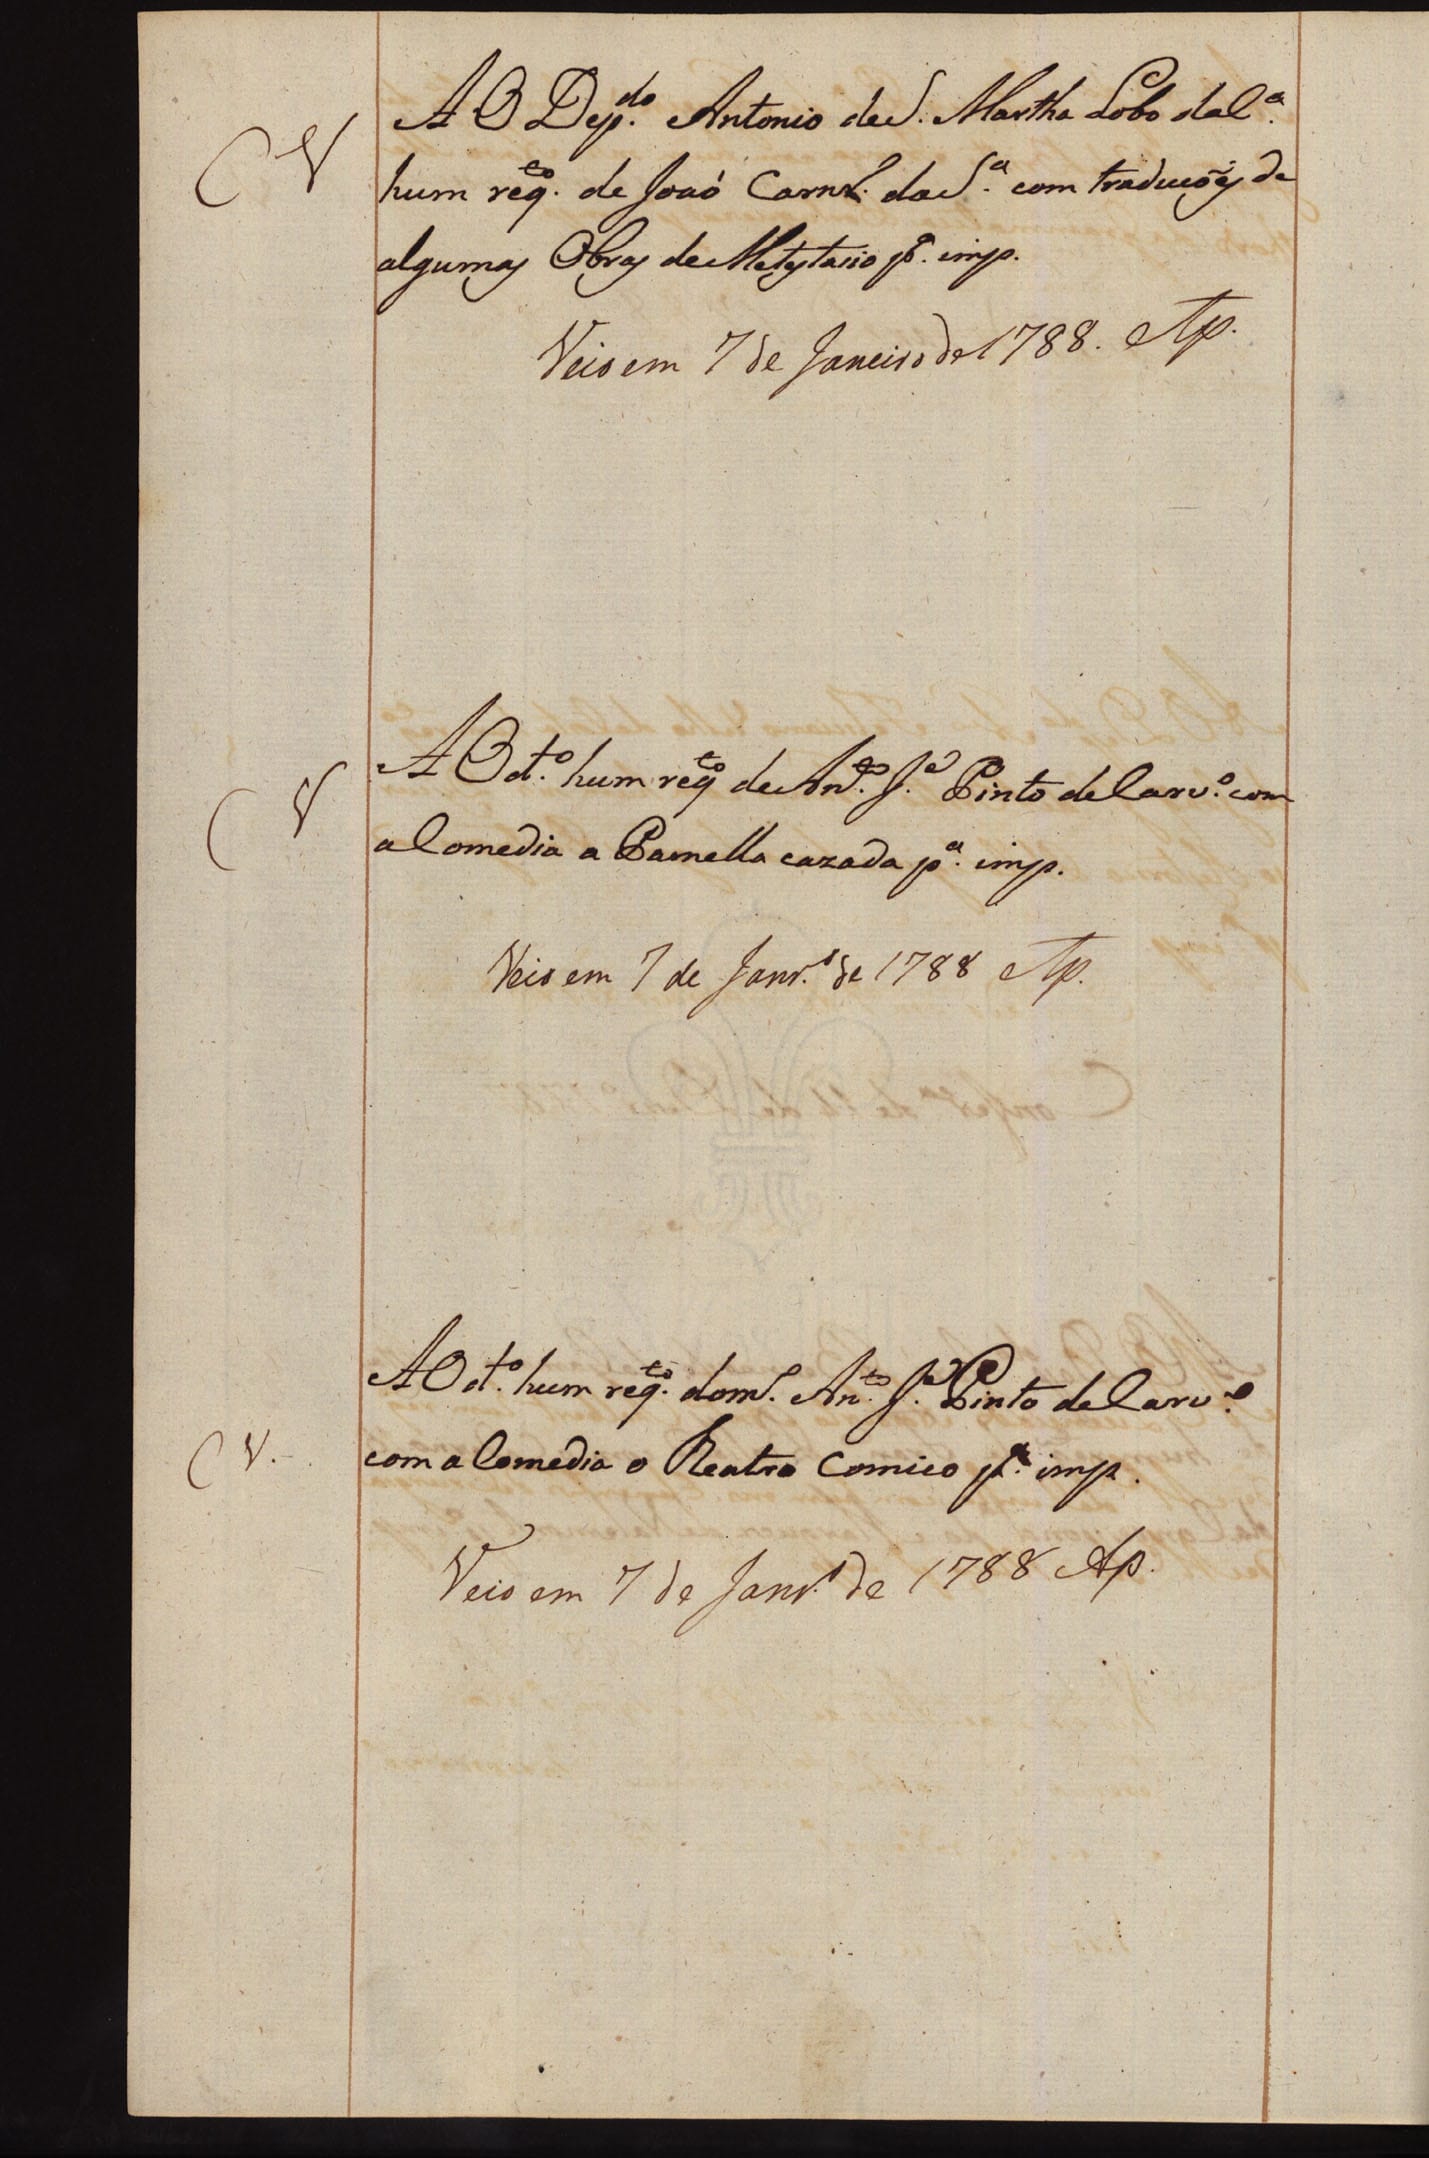 AO Dep.do Antonio de S. Martha Lobo da C.a
C V
hum req.to de Joaõ Carn.ro da S.a com traducoe͂s de
algumas Obras de Metastasio p.a imp.
Veio em 7 de Janeiro de 1788. Ap.
AO d.to hum req.to de An.to J.e Pinto de Carv.o com
C V
a Comedia a Pamella cazada p.a imp.
Veio em 7 de Janr.o de 1788 Ap.
AO d.to hum req.to do m.o An.to J.e Pinto de Carv.o
C V.
com a Comedia o Theatro Comico p.a imp.
Veio em 7 de Janr.o de 1788 Ap.